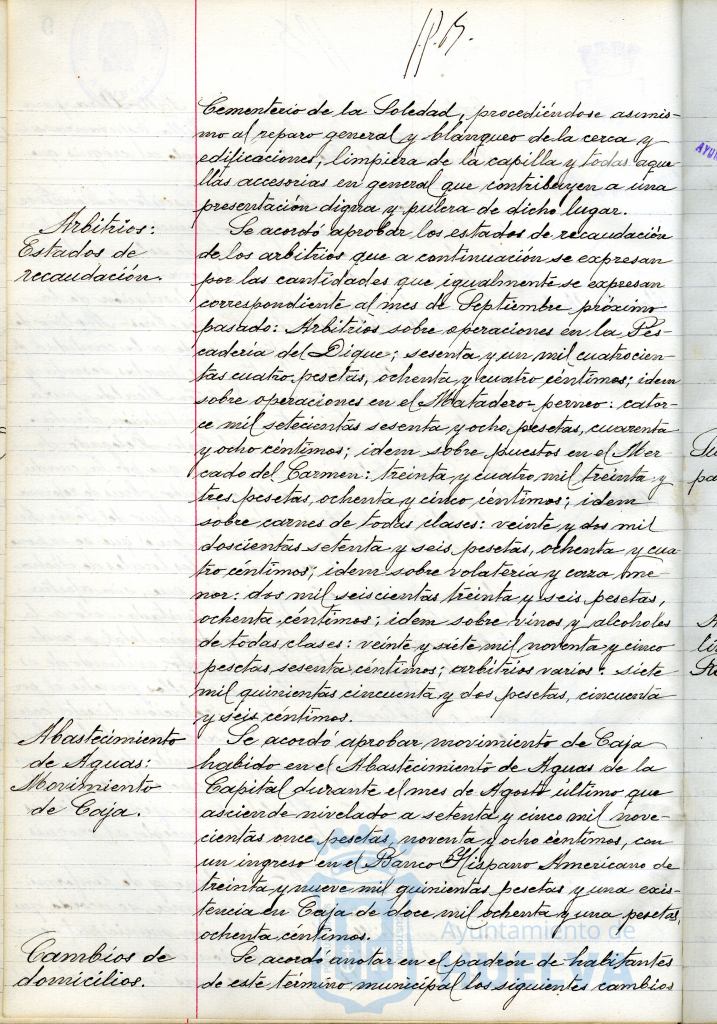 Cementerio de la Soledad, procediéndose asimis-
mo al reparo general y blanqueo de la cerca y
edificaciones, limpiera de la capilla y todas aque
llas accesorias en general que contribuyen a una
presentación digna y pulcra de dicho lugar.
Arbitrios:
Estados de
recaudación.
Se acordó aprobar los estados de recaudación
de los arbitrios que a continuación se expresan
por las cantidades que igualmente se expresan
correspondiente al mes de Septiembre próximo
pasado: Arbitrios sobre operaciones en la Pes-
cadería del Dique; sesenta y un mil cuatrocien-
tas cuatro pesetas, ochenta y cuatro céntimos; idem
sobre operaciones en el Matadero-perneo: cator-
ce mil setecientas sesenta y ocho pesetas, cuarenta
y ocho céntimos; idem sobre puestos en el Mer
cado del Carmen: treinta y cuatro mil treinta y
tres pesetas, ochenta y cinco céntimos; idem
sobre carnes de todas clases: veinte y dos mil
doscientas setenta y seis pesetas, ochenta y cua
tro céntimos; idem sobre volatería y caza me-
nor: dos mil seiscientas treinta y seis pesetas,
ochenta céntimos; idem sobre vinos y alcoholes
de todas clases: veinte y siete mil noventa y cinco
pesetas, sesenta céntimos; arbitrios varios: siete
mil quinientas cincuenta y dos pesetas, cincuenta
y seis céntimos.
Abastecimiento
de Aguas:
Movimiento
de Caja.
Se acordó aprobar movimiento de Caja
habido en el Abastecimiento de Aguas de la
Capital durante el mes de Agosto último que
asciende nivelado a setenta y cinco mil nove-
cientas once pesetas, noventa y ocho céntimos, con
un ingreso en el Banco Hispano Americano de
treinta y nueve mil quinientas pesetas y una exis-
tencia en Caja de doce mil ochenta y una pesetas,
ochenta céntimos.
Cambios de
domicilios.
Se acordó anotar en el padrón de habitantes
de este término municipal los siguientes cambios
Ayuntamiento de
HUELVA